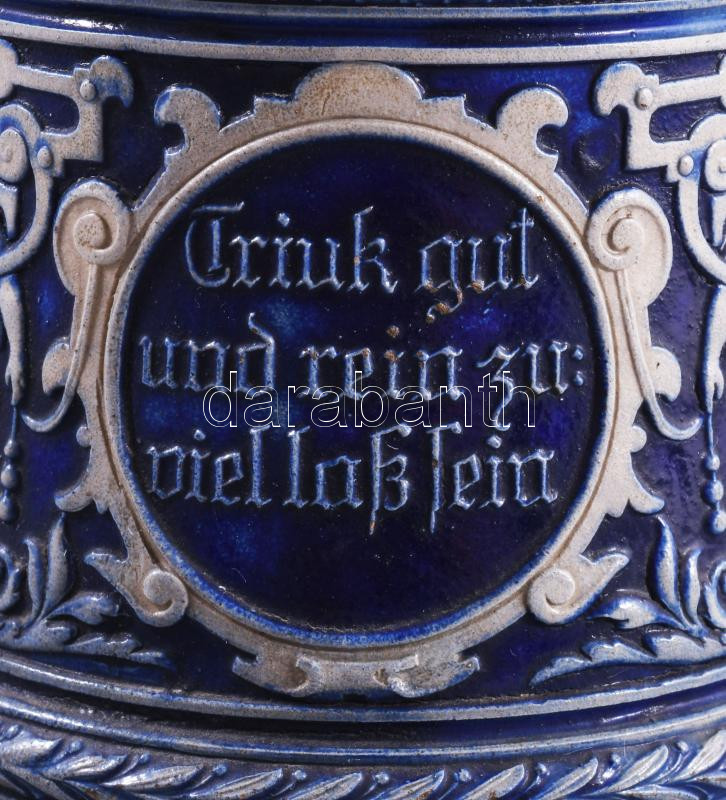 Trink gut
und rein zu:
viel laß sein
darabanth